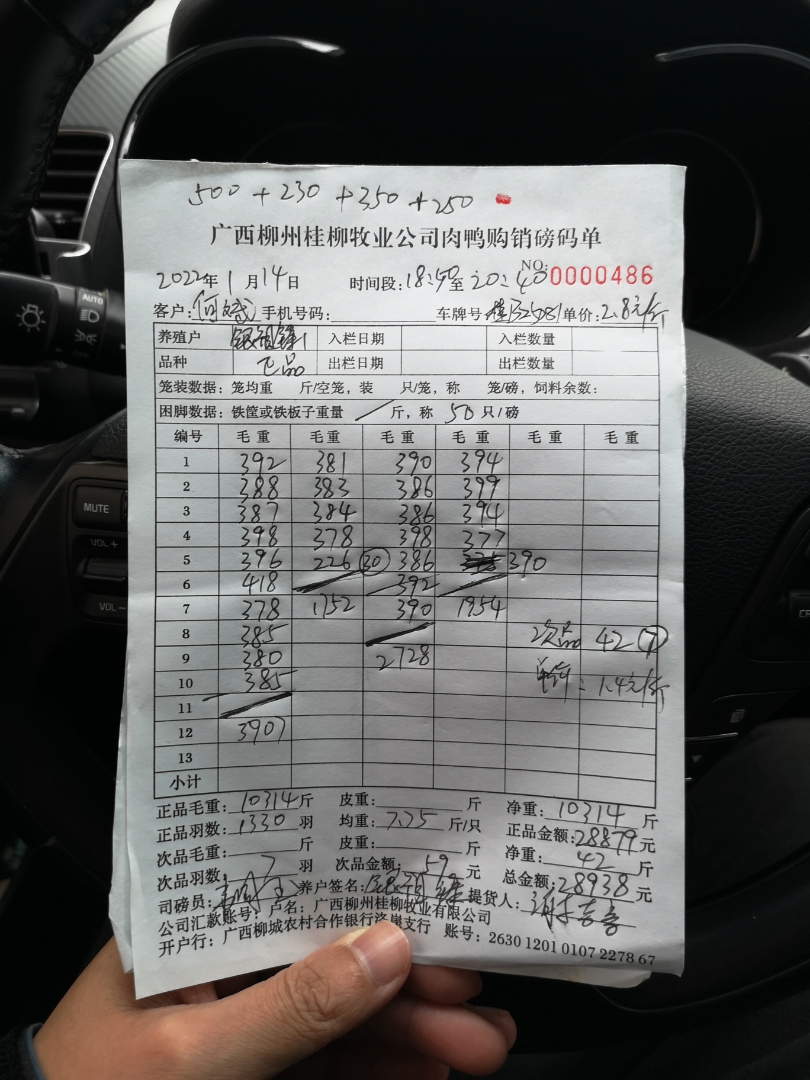 500 + 230 + 350 + 250
广西柳州桂柳牧业公司肉鸭购销磅码单
2022年 1 月 14 日 时间段: 18:50 至 20:40 NO: 0000486
客户: 何 手机号码: 车牌号 单价: 2.8元/斤
养殖户 入栏日期 入栏数量
品种 出栏日期 出栏数量
笼装数据: 笼均重 斤/空笼, 装 只/笼, 称 笼/磅, 饲料余数:
困脚数据: 铁筐或铁板子重量 / 斤, 称 50 只/磅
编号 毛重 毛重 毛重 毛重 毛重 毛重
1 392 381 390 394
2 388 383 386 399
3 387 384 386 394
4 398 378 398 377
5 396 226 30 386 390
6 418 392
7 378 1752 390 1954
8 385 次品 42 7
9 380 2728
10 385 单价: 1.4元/斤
11
12 3907
13
小计
正品毛重: 10314 斤 皮重: 斤 净重: 10314 斤
正品羽数: 1330 羽 均重: 7.75 斤/只 正品金额: 28879 元
次品毛重: 斤 皮重: 斤 净重: 42 斤
次品羽数: 7 羽 次品金额: 59 元 总金额: 28938 元
司磅员: 养户签名: 提货人:
公司汇款账号: 户名: 广西柳州桂柳牧业有限公司
开户行: 广西柳城农村合作银行洛崖支行 账号: 2630 1201 0107 2278 67
MUTE
VOL+
VOL-
AUTO